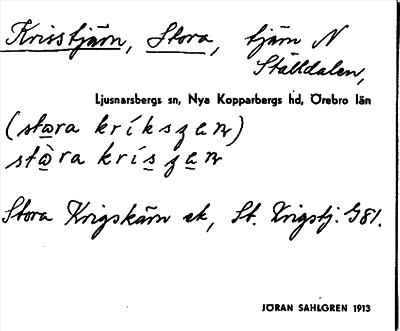 Krisstjärn, Stora, tjärn N
Ställdalen,
Ljusnarsbergs sn, Nya Kopparbergs hd, Örebro län
(stora kríkszan)
stòra kríszan
Stora Krigskärn ek, St. Krigstj. G81.
JÖRAN SAHLGREN 1913